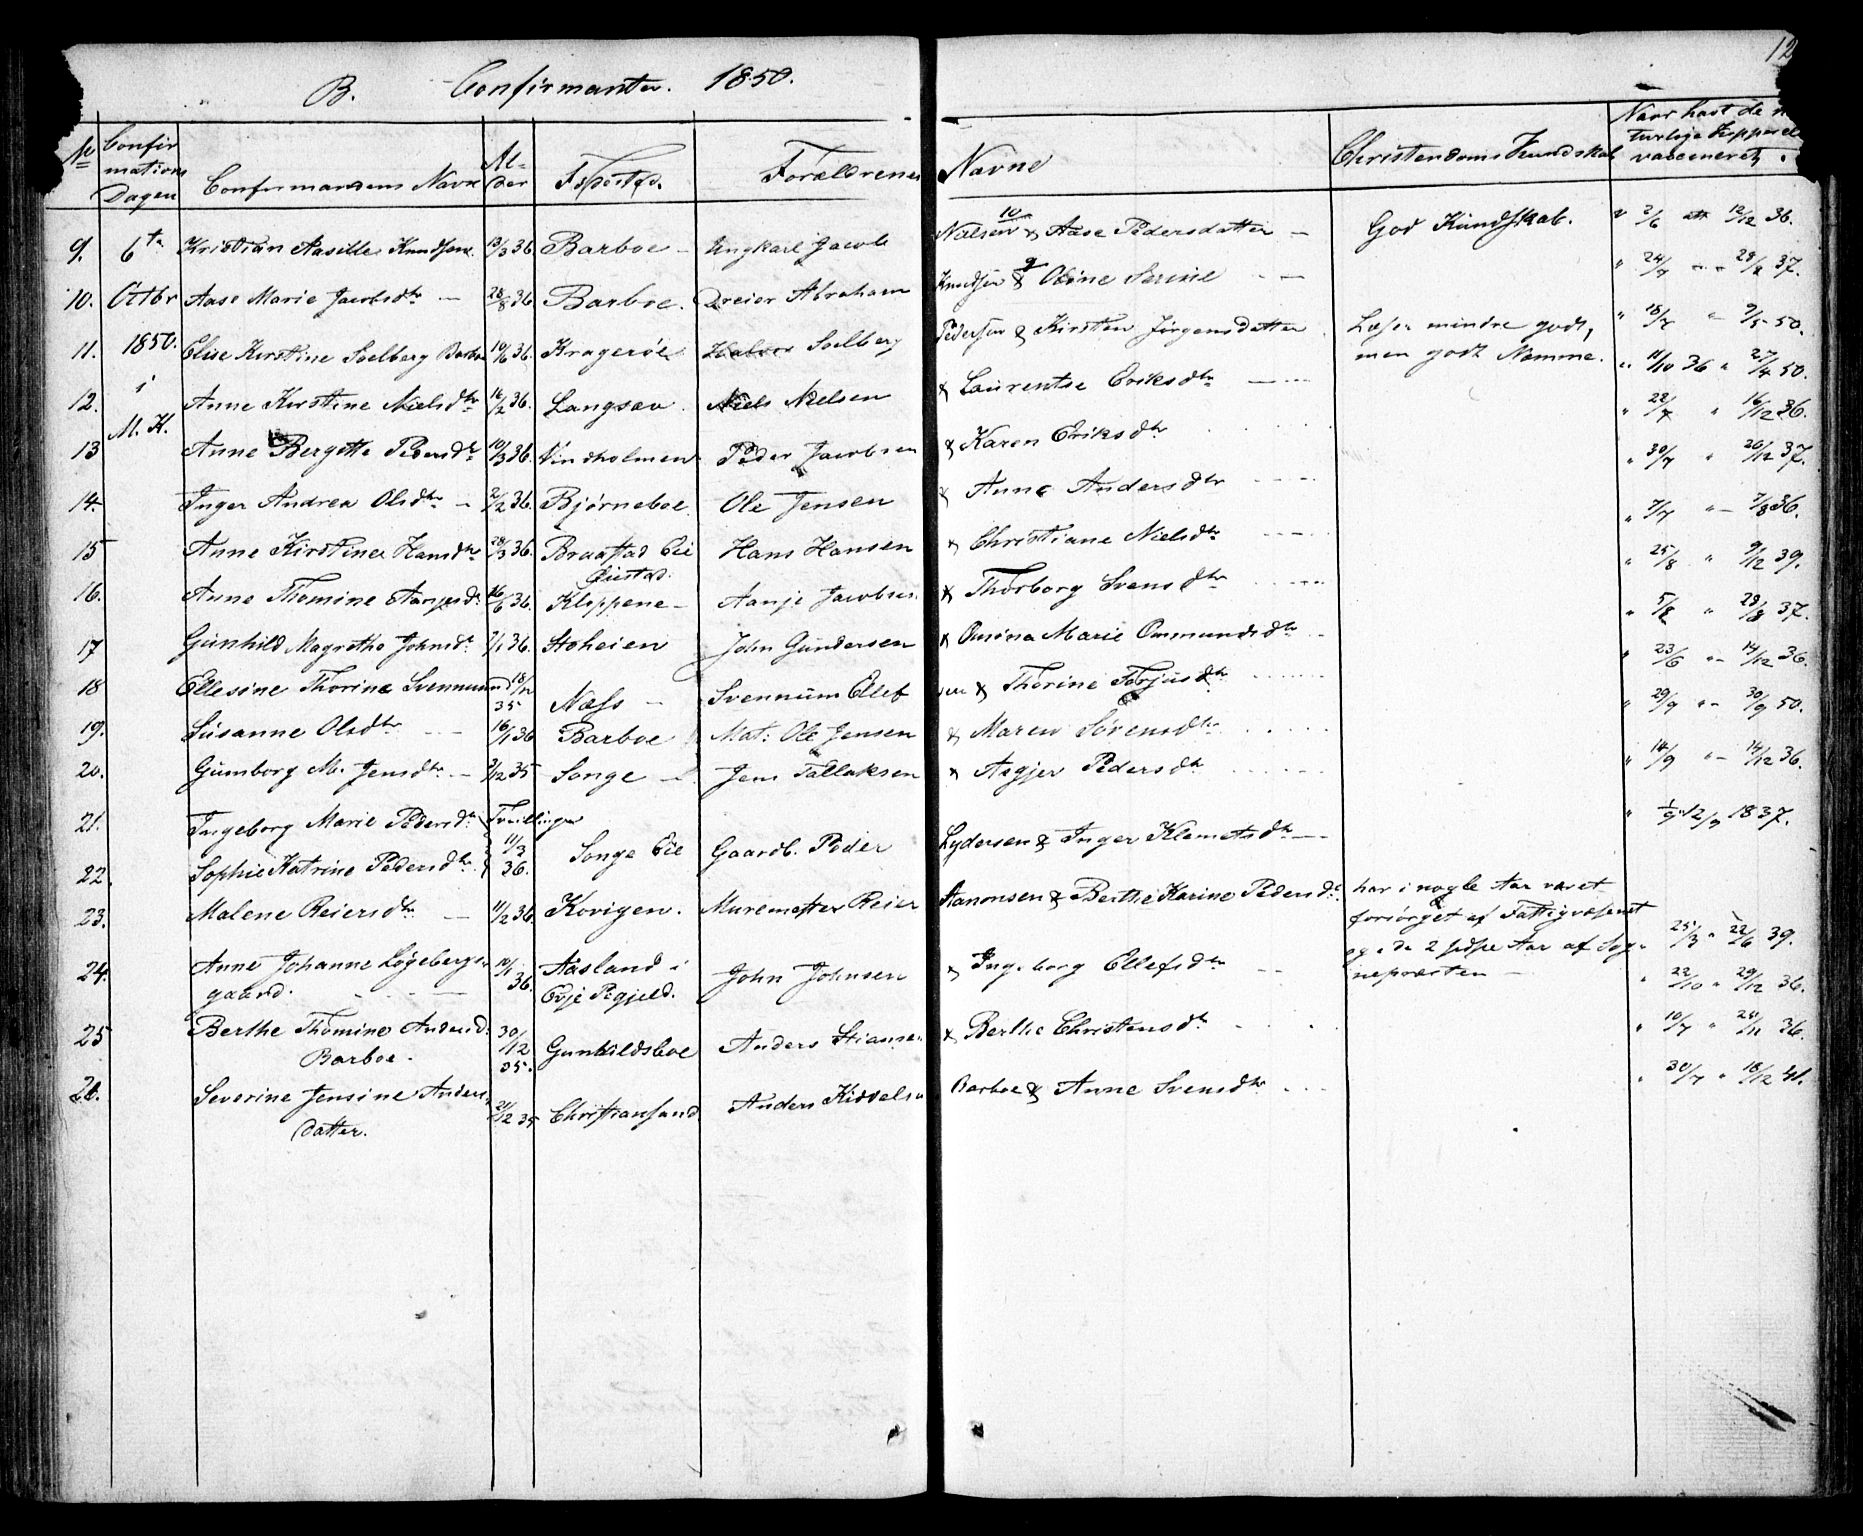 12
B. Confirmanter. 1850.
No Confirmations Dagen Confirmandens Navn Alder Fødested. Forældrenes Navne Christendoms Kundskab Naar havt de naturlige Kopper el vaccineret
9. 6te Kristian Aasille Knudsen 13/3 36 Barboe - Ungkarl Jacob Nielsen & Aase Pedersdatter — God Kundskab. v 2/6 att 12/12 36.
10. Octbr Aase Marie Jacobsdtr — 28/8 36 Barboe. Dreier Abraham Knudsen & Oline Serine - - " 24/7 - - 28/8 37.
11. 1850. Elise Kirstine Soelberg Barboe 10/6 36. Kragerøe Soelberg Pedersen & Kirsten Jørgensdatter Læser mindre godt, " 18/7 " 9/5 50.
men godt Nemme.
12. i Anne Kirstine Nielsdtr 16/2 36. Langsæv. Niels Nielsen & Laurentse Eriksdtr " 11/10 36 " 27/4 50.
13 M. K. Anne Bergitte Pedersdtr 10/3 36. Vindholmen Peder Jacobsen & Karen Eriksdtr " 22/7 " 16/12 36.
14. Inger Andrea Olsdtr — 2/2 36. Bjørneboe Ole Jensen & Anne Andersdtr " 30/7 " 20/12 37.
15 Anne Kirstine Hansdtr 28/3 36. Braastad Eie Hans Hansen & Christiane Nielsdtr " 7/7 " - 7/8 36.
16. Anne Thomine Aanjesdtr 26/6 36. Kloppene - Aanje Jacobsen & Thorborg Svensdtr " 25/8 " 9/12 39.
17 Gunhild Magrethe Johnsdtr 7/1 36. Stoheien John Gundersen & Omina Marie Ommundsdtr " 5/8 " 28/8 37.
18 Ellesine Thorine Svennumd 18/12 35 Næss - Svennum Ellef & Thorine Terjusdtr " 23/6 " - 14/12 36.
19. Susanne Olsdtr 16/1 36 Barboe Mat: Ole Jensen & Maren Sørensdtr " 29/9 " - 30/9 50.
20. Gumborg M. Jensdtr — 3/12 35 Songe Jens Tallaksen & Asgjer Pedersdtr " 14/9 " - 14/12 36.
21. Ingeborg Marie Pedersdtr Tvillinger
22. Sophie Katrine Pedersdtr 11/3 36. Songe Eie Gaardb. Peder Lydersen & Inger Klemetsdtr — 1837.
23. Malene Reiersdtr — 11/2 36. Kovigen. Muremester Reier Aanonsen & Berthe Karine Pedersdtr har i nogle Aar været
forsørget af Fattigvæsenet
og de 2 sidste Aar af Sog-
nepræsten — 25/3 " 22/6 39.
24. Anne Johanne Løgebergs-
gaard. 10/1 36. Aasland i
Evje Pgjeld. John Johnsen & Ingeborg Ellefsdtr " 22/10 " 29/12 36.
25 Berthe Thomine Andersd.
Barboe. 30/12 35. Gunhildsboe Anders Stiansen & Berthe Christensdtr " 10/7 " 28/11 36.
26. Severine Jensine Anders
datter. 21/12 35 Christiansand Anders Kiddelsen Barboe & Anne Svensdtr " 30/7 " 18/12 41.